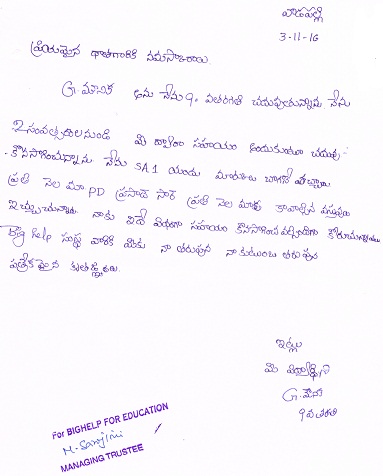 పాడుపల్లి
3-11-16
ప్రియమైన దాతగారికి నమస్కారాలు
G. మౌనిక అను నేను 9వ తరగతి చదువుచున్నాను నేను
2 సంవత్సరాలనుండి మీ ద్వారా సహాయం అందుకుంటూ చదువు
కొనసాగించుచున్నాను నేను SA1 యందు మార్కులు బాగానే వచ్చాయి
ప్రతి నెల మా PD ప్రసాద్ సార్ ప్రతి నెల మాకు కావాల్సిన వస్తువులు
ఇచ్చుచున్నారు నాకు ఇదే విధంగా సహాయం కొనసాగించవలసిందిగా కోరుచున్నాను
Big help సంస్థ వారికి మీకు నా తరుపున నా కుటుంబ తరుపున
ప్రత్యేకమైన కృతజ్ఞతలు.
ఇట్లు
మీ విద్యార్థిని
G. మౌనిక
9వ తరగతి
For BIGHELP FOR EDUCATION
M. Sarojini
MANAGING TRUSTEE